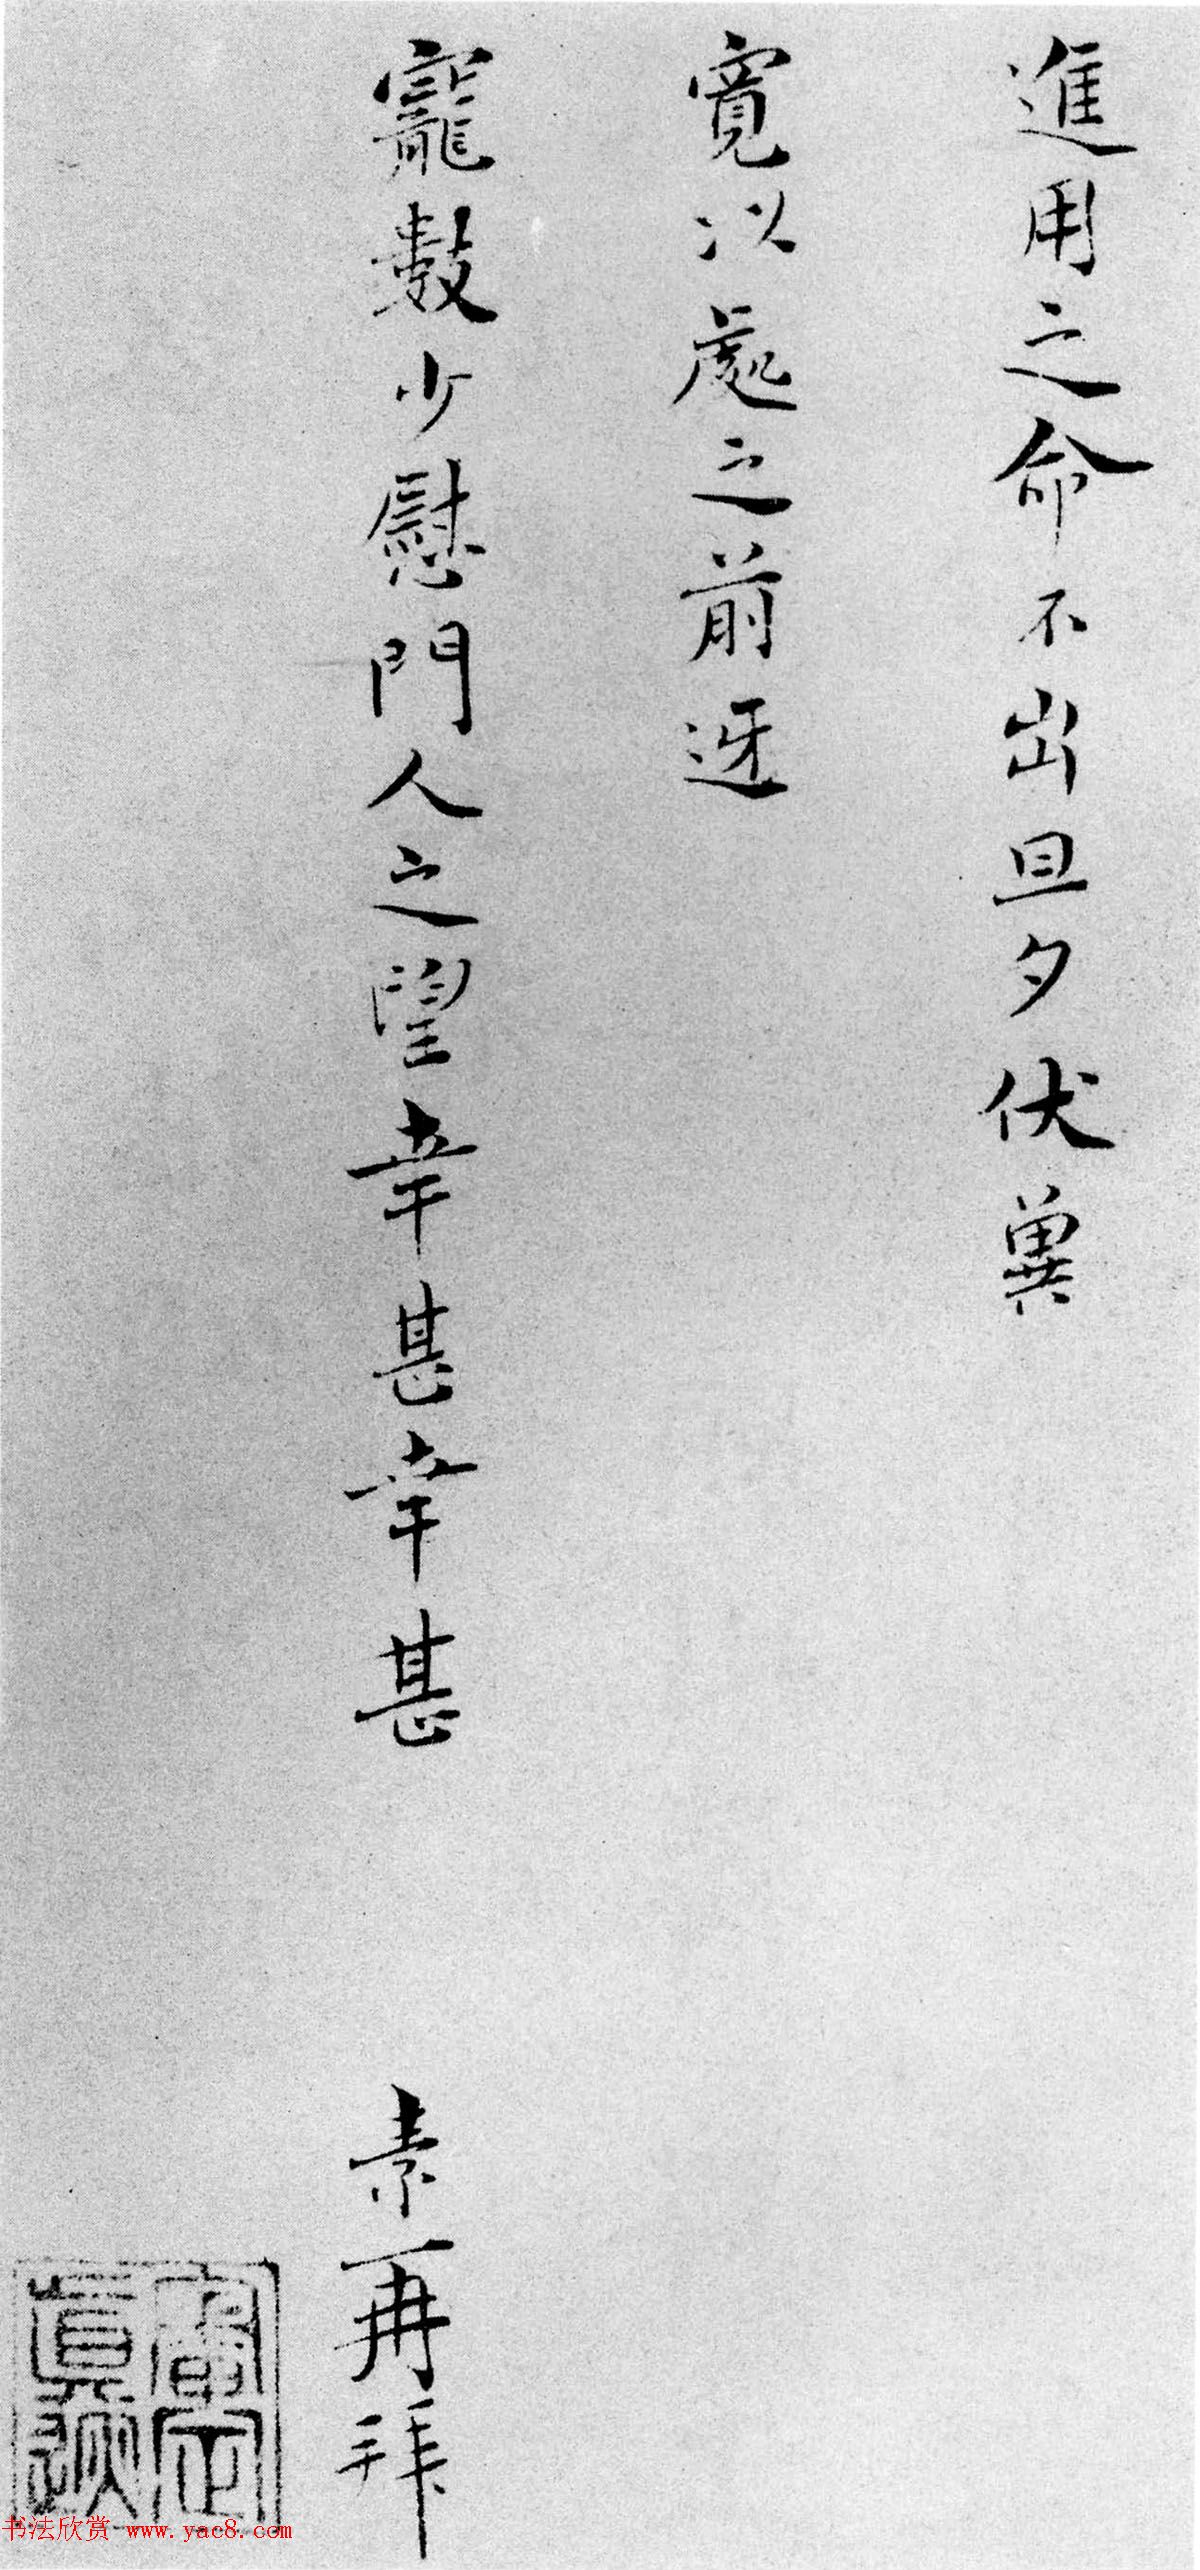 進用之命不出旦夕伏冀
寬以處之前迓
寵數少慰門人之望幸甚幸甚
素再拜
書法欣赏 www.yac8.com